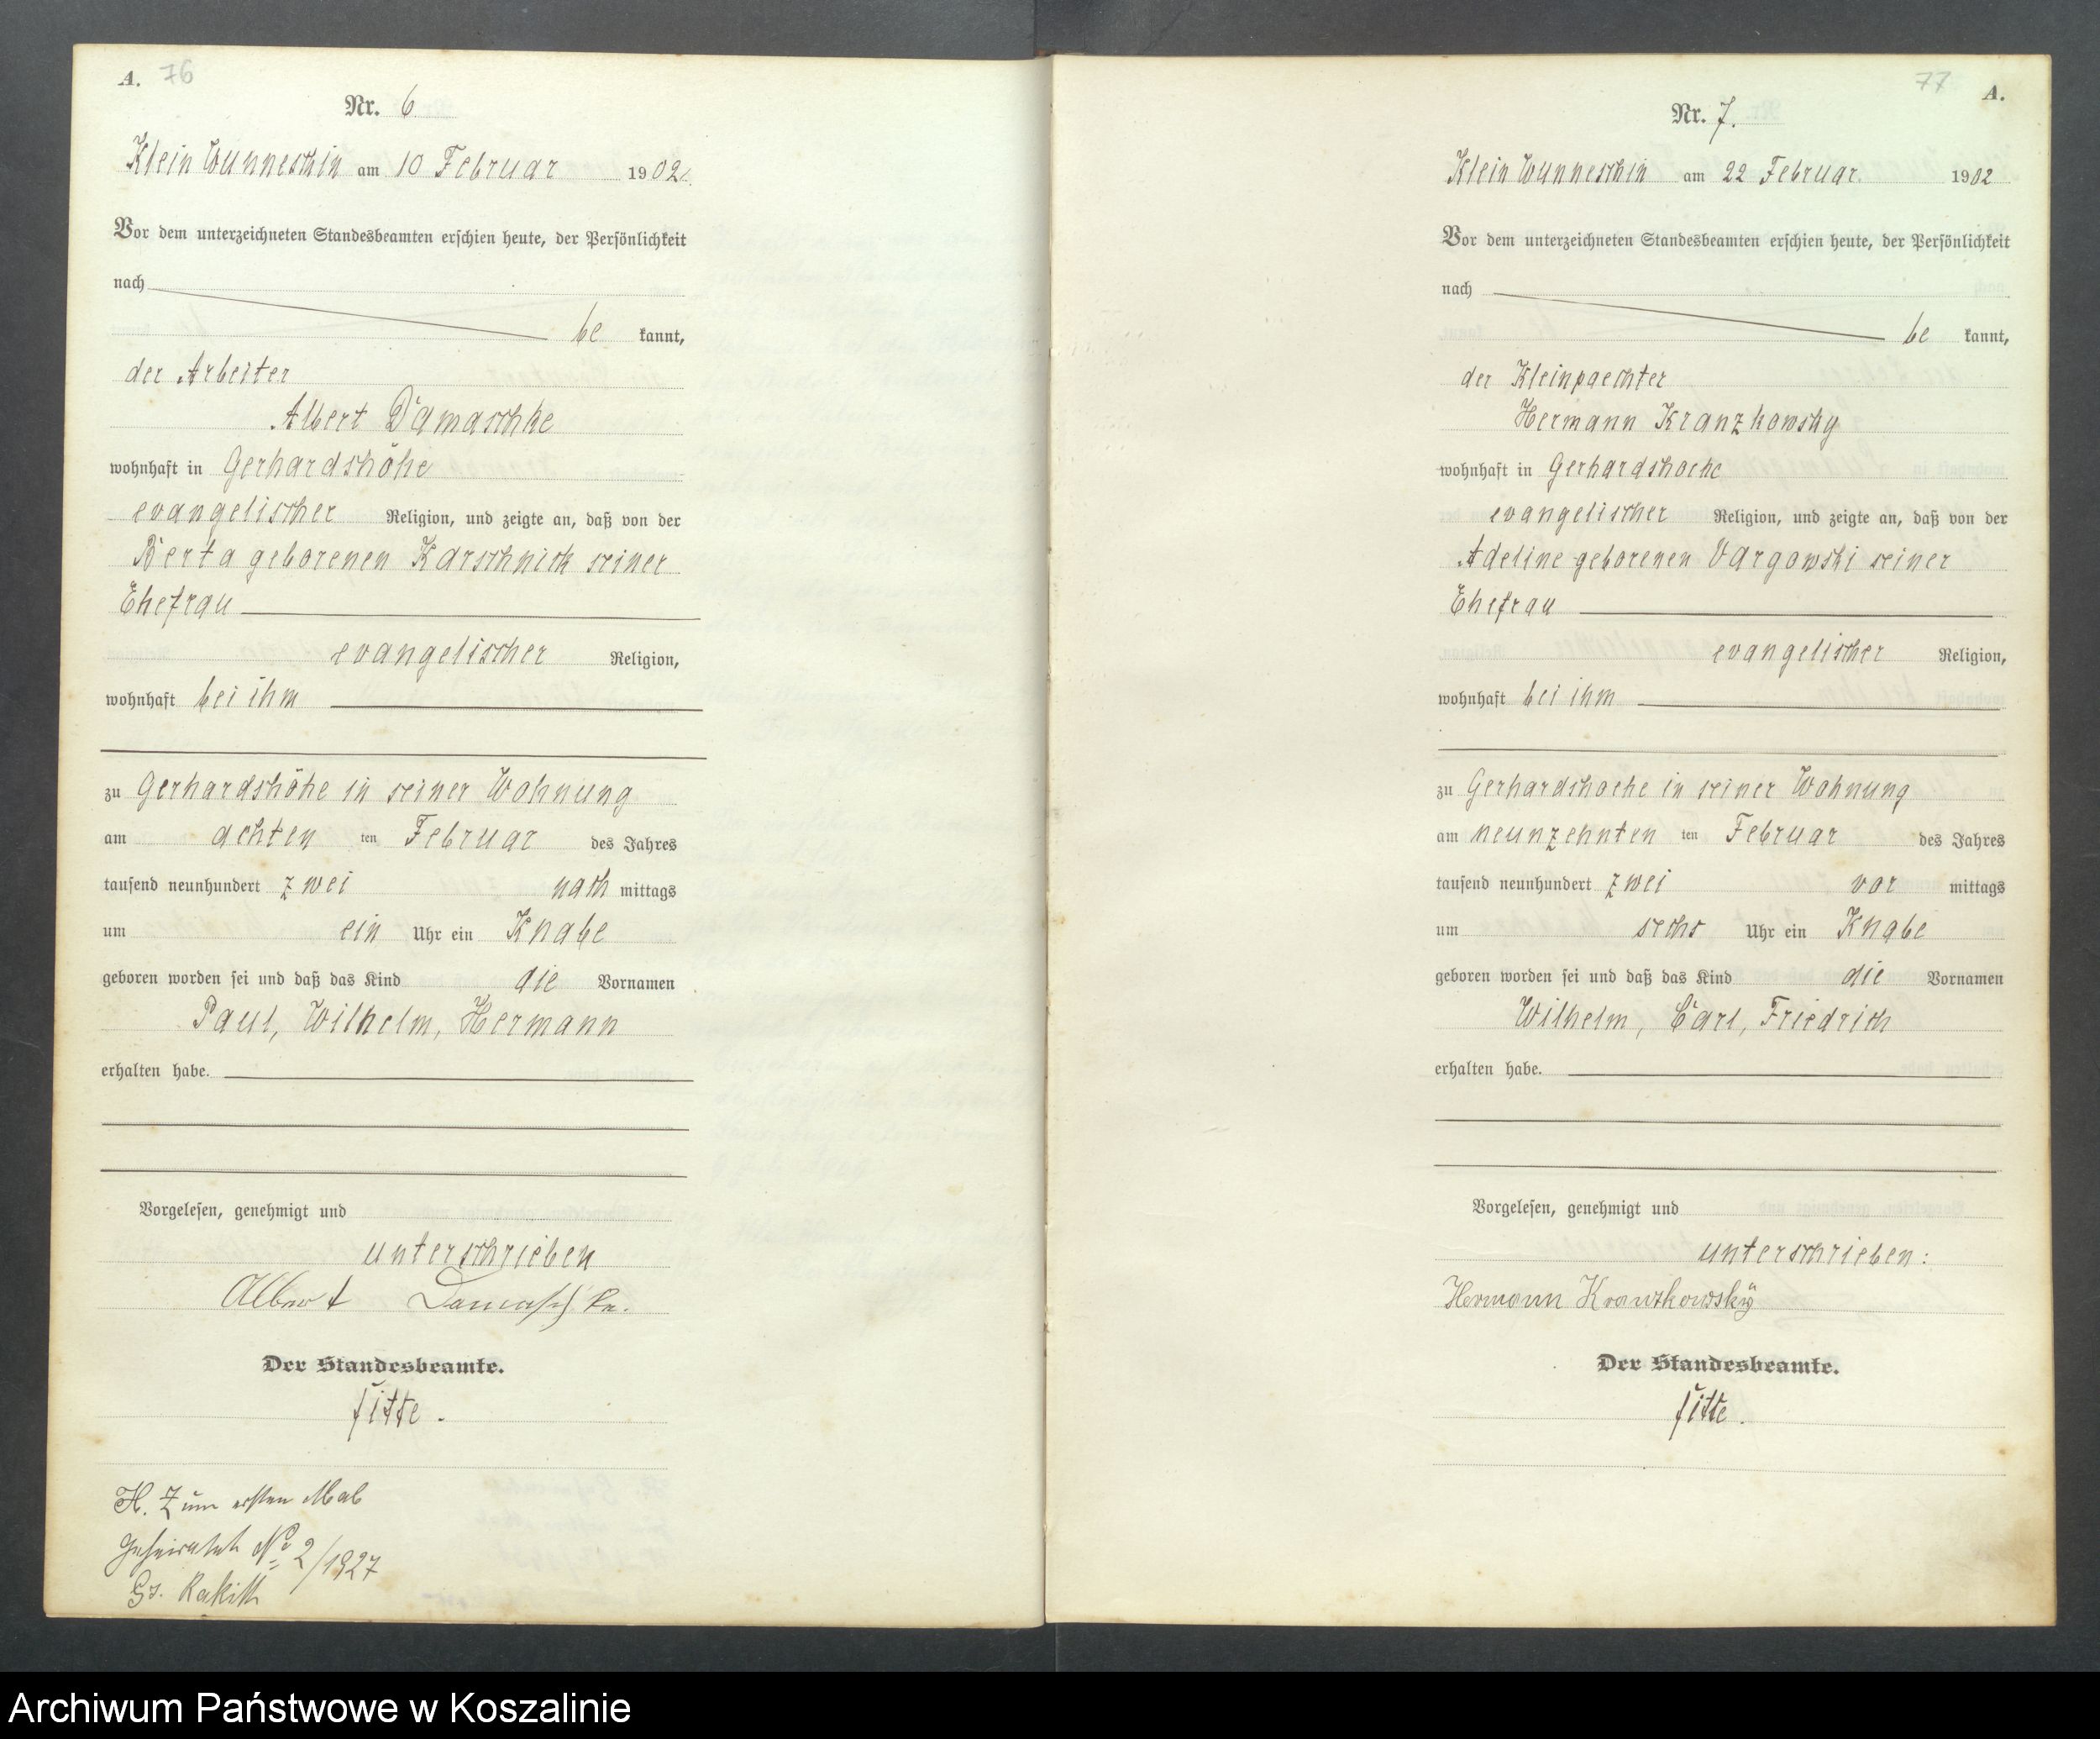 A. 76
Nr. 6
Klein Wunneschin am 10 Februar 1902.
Vor dem unterzeichneten Standesbeamten erschien heute, der Persönlichkeit
nach
be kannt,
der Arbeiter
Albert Damaschke
wohnhaft in Gerhardshöhe
evangelischer Religion, und zeigte an, daß von der
Berta geborenen Karschnick seiner
Ehefrau
evangelischer Religion,
wohnhaft bei ihm
zu Gerhardshöhe in seiner Wohnung
am achten ten Februar des Jahres
tausend neunhundert zwei nach mittags
um ein Uhr ein Knabe
geboren worden sei und daß das Kind die Vornamen
Paul, Wilhelm, Hermann
erhalten habe.
Vorgelesen, genehmigt und
unterschrieben
Albert Damaschke.
Der Standesbeamte.
Titte.
H. Zum ersten Mal
geheiratet No 2/1927
Gs. Rakitt
77 A.
Nr. 7.
Klein Wunneschin am 22 Februar 1902
Vor dem unterzeichneten Standesbeamten erschien heute, der Persönlichkeit
nach
be kannt,
der Kleinpaechter
Hermann Kranzkowsky
wohnhaft in Gerhardshoehe
evangelischer Religion, und zeigte an, daß von der
Adeline geborenen Vargowski seiner
Ehefrau
evangelischer Religion,
wohnhaft bei ihm
zu Gerhardshoehe in seiner Wohnung
am neunzehnten ten Februar des Jahres
tausend neunhundert zwei vor mittags
um sechs Uhr ein Knabe
geboren worden sei und daß das Kind die Vornamen
Wilhelm, Carl, Friedrich
erhalten habe.
Vorgelesen, genehmigt und
unterschrieben:
Hermann Kranzkowsky
Der Standesbeamte.
Titte.
Archiwum Państwowe w Koszalinie